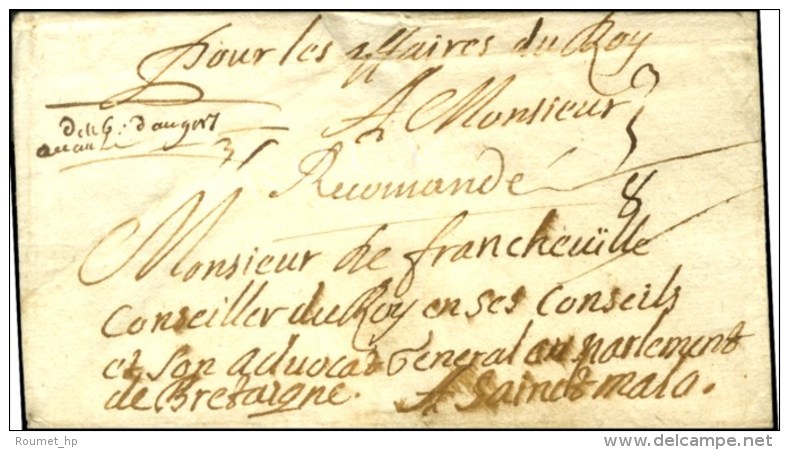 Pour les affaires du Roy
A Monsieur
de la g. d'angers
Recomandé
8
Monsieur de francheuïlle
Conseiller du Roy en ses Conseils
et son advocat General au parlement
de Bretaigne. A Sainct malo.
Roumet_hp
www.delcampe.net